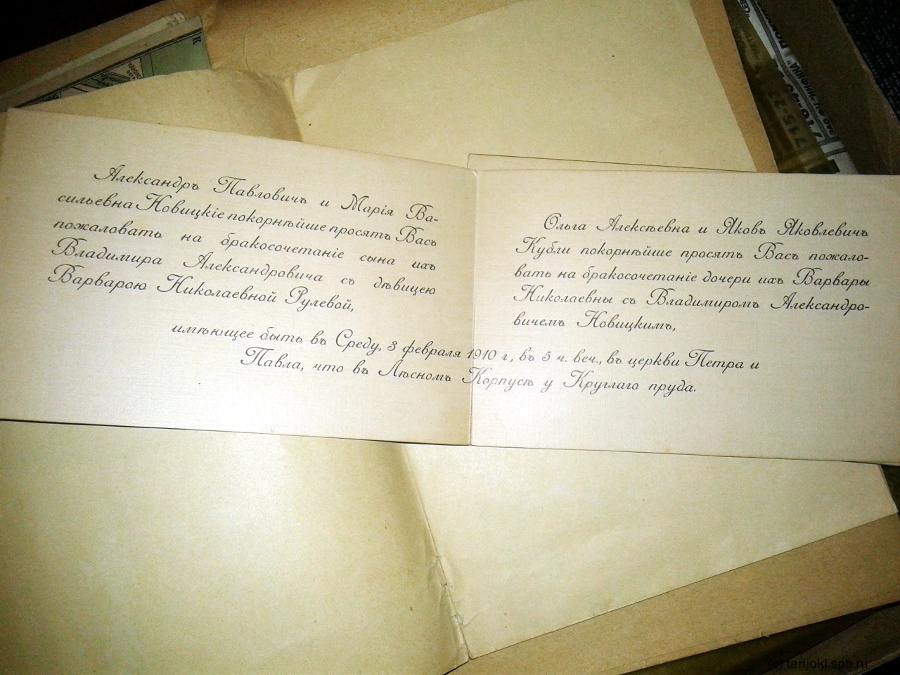 Александръ Павловичъ и Марія Ва-
сильевна Новицкіе покорнѣйше просятъ Васъ
пожаловать на бракосочетаніе сына ихъ
Владимира Александровича съ дѣвицею
Варварою Николаевной Рулевой,
Ольга Алексѣевна и Яковъ Яковлевичъ
Кубли покорнѣйше просятъ Васъ пожало-
вать на бракосочетаніе дочери ихъ Варвары
Николаевны съ Владимиромъ Александро-
вичемъ Новицкимъ,
имѣющее быть въ Среду, 3 февраля 1910 г., въ 5 ч. веч., въ церкви Петра и
Павла, что въ Лѣсномъ Корпусѣ у Круглаго пруда.
(c) terijoki.spb.ru